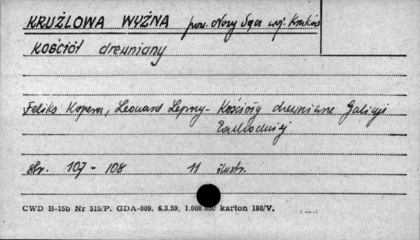 KRUŻLOWA WYŻNA pow. Nowy Sącz woj. Kraków
KOŚCIÓŁ drewniany
Feliks Kopera, Leonard Lepszy - Kościoły drewniane Galicji
Zachodniej
Str. 107 - 108 11 ilustr.
CWD B-15b Nr 515/P. GDA-809. 6.3.59, 1.000.000 karton 180/V.